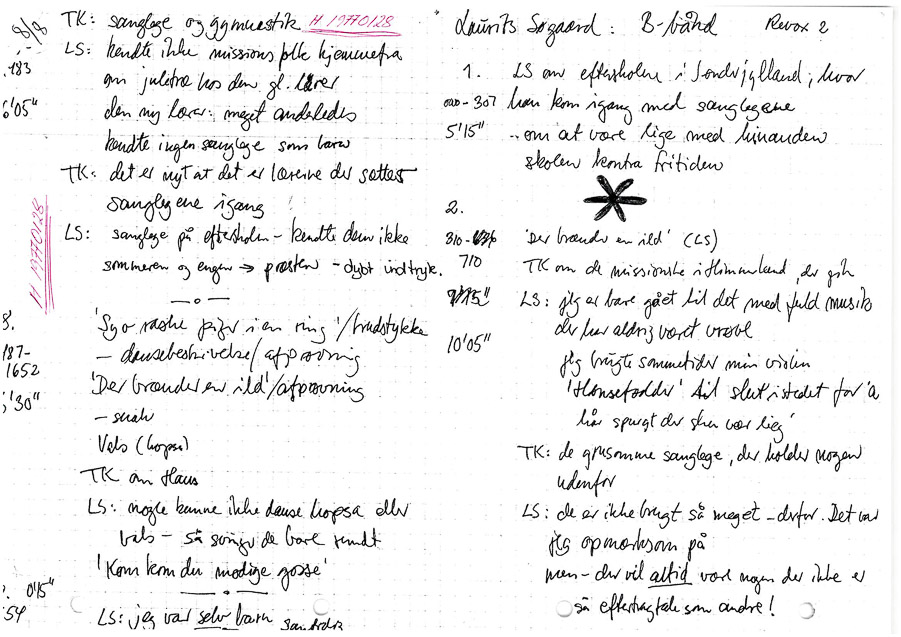 8/8
TK: sanglege og gymnastik H 19770128
LS: kendte ikke missionsfolk hjemmefra
.183
om juletræ hos den gl. lærer
5'05"
den ny lærer: meget anderledes
kendte ingen sanglege som barn
TK: det er nyt at det er lærerne der sætter
sanglegene igang
H 19770128
LS: sanglege på efterskolen - kendte dem ikke
sommeren og engen → præsten - dybt indtryk.
— o —
'Syv raske piger i en ring'/brudstykke
187-
1652
- dansebeskrivelse/afprøvning
'Der brænder en ild'/afprøvning
;'30"
- snak
Vals (hopsa)
TK om Haus
LS: nogle kunne ikke danse hopsa eller
vals - så svinger de bare rundt
'Kom kom du modige gosse'
0'15"
54
LS: jeg var selv barn
Laurits Søgaard: B-bånd Revox 2
1. LS om efterskolen i Sønderjylland, hvor
000-307 han kom igang med sanglegene
5'15" ..om at være lige med hinanden
skolen kontra fritiden
2.
310-
710
'Der brænder en ild' (LS)
TK om de missionske i Himmerland, der gik
LS: jeg er bare gået til det med fuld musik
der har aldrig været vrøvl
10'05"
jeg brugte sommetider min violin
'Hønsefødder' til slut istedet for 'a
hår spurgt der sku vær lieg'
TK: de grusomme sanglege, der holder nogen
udenfor
LS: de er ikke brugt så meget - derfor. Det var
jeg opmærksom på
men - der vil altid være nogen der ikke er
så eftertragtede som andre!